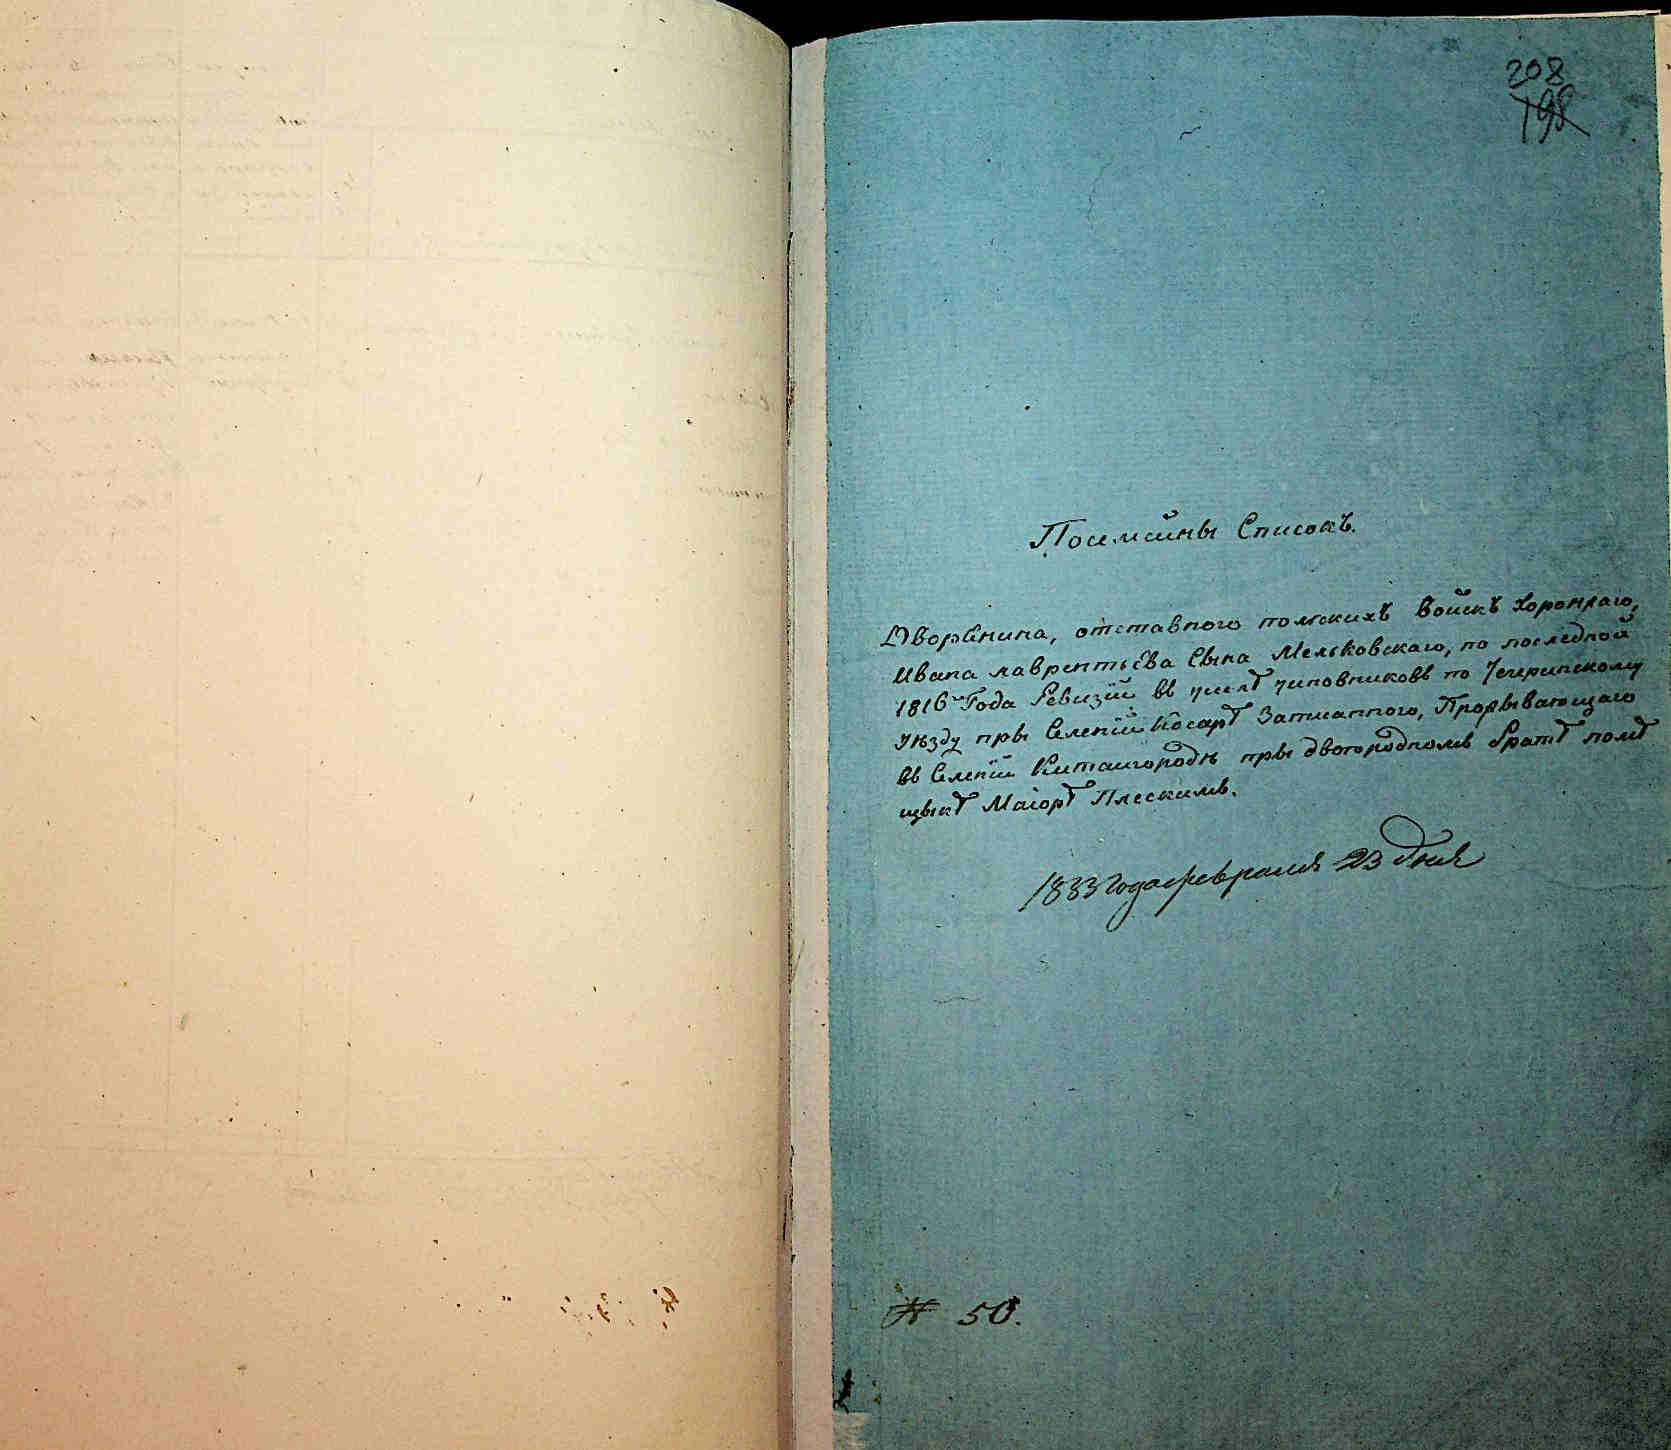 208
198
Посемейны Списокъ.
Дворянина, отставного польскихъ Войскъ Хоронжаго,
Ивана лаврентьева Сына Мельковскаго, по последной
1816 Года Ревизiи въ числѣ чиновниковъ по Чегринскому
уѣзду пры Селенiи Косарѣ Записанного,
въ Селенiи Китайгородѣ пры двогородномъ братѣ помѣ
щыкѣ Маiорѣ Плескимъ.
1833 Года февраля 23 дня
№ 50.